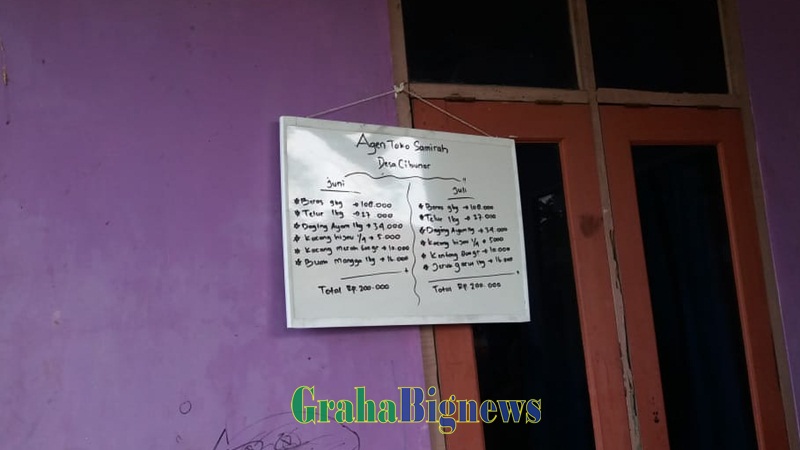 Agen Toko Samirah
Desa Cibunar
juni
* Beras 9kg → 108.000
* Telur 1kg → 27 000
* Daging Ayam 1kg → 34.000
* Kacang hijau 1/4 → 5.000
* Kacang Merah → 10.000
* Buah Mangga 1kg → 16.000
Total Rp. 200.000
juli
* Beras 9kg → 108.000
* Telur 1kg → 27.000
* Daging Ayam 1kg → 34.000
* Kacang hijau 1/4 → 5000
* Kentang → 10.000
* Jeruk 1kg → 16.000
Total Rp. 200.000
GrahaBignews